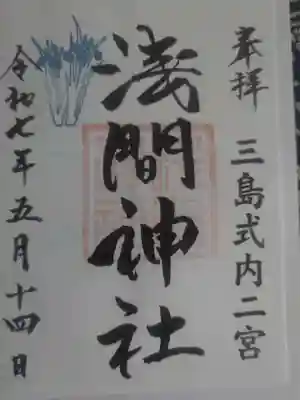 奉拝 三島式内二宮
浅間神社
令和七年五月十四日